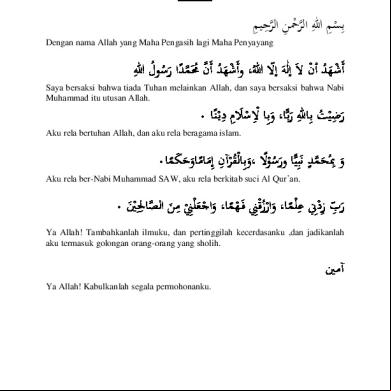 بِسْمِ اللهِ الرَّحْمٰنِ الرَّحِيمِ
Dengan nama Allah yang Maha Pengasih lagi Maha Penyayang
أَشْهَدُ أَنْ لَا إِلٰهَ إِلَّا اللهُ، وأَشْهَدُ أَنَّ مُحَمَّدًا رَسُولُ اللهِ
Saya bersaksi bahwa tiada Tuhan melainkan Allah, dan saya bersaksi bahwa Nabi
Muhammad itu utusan Allah.
رَضِيْتُ بِاللهِ رَبًّا، وَبِا لْاِسْلَامِ دِيْنًا .
Aku rela bertuhan Allah, dan aku rela beragama islam.
وَ بِمُحَمَّدٍ نَبِيًّا ورَسُوْلًا ،وَبِالْقُرْآنِ إِمَامًاوَحَكَمًا .
Aku rela ber-Nabi Muhammad SAW, aku rela berkitab suci Al Qur'an.
رَبِّ زِدْنِي عِلْمًا، وَارْزُقْنِي فَهْمًا، وَاجْعَلْنِيْ مِنَ الصَّالِحِيْنَ .
Ya Allah! Tambahkanlah ilmuku, dan pertinggilah kecerdasanku ,dan jadikanlah
aku termasuk golongan orang-orang yang sholih.
آمين
Ya Allah! Kabulkanlah segala permohonanku.